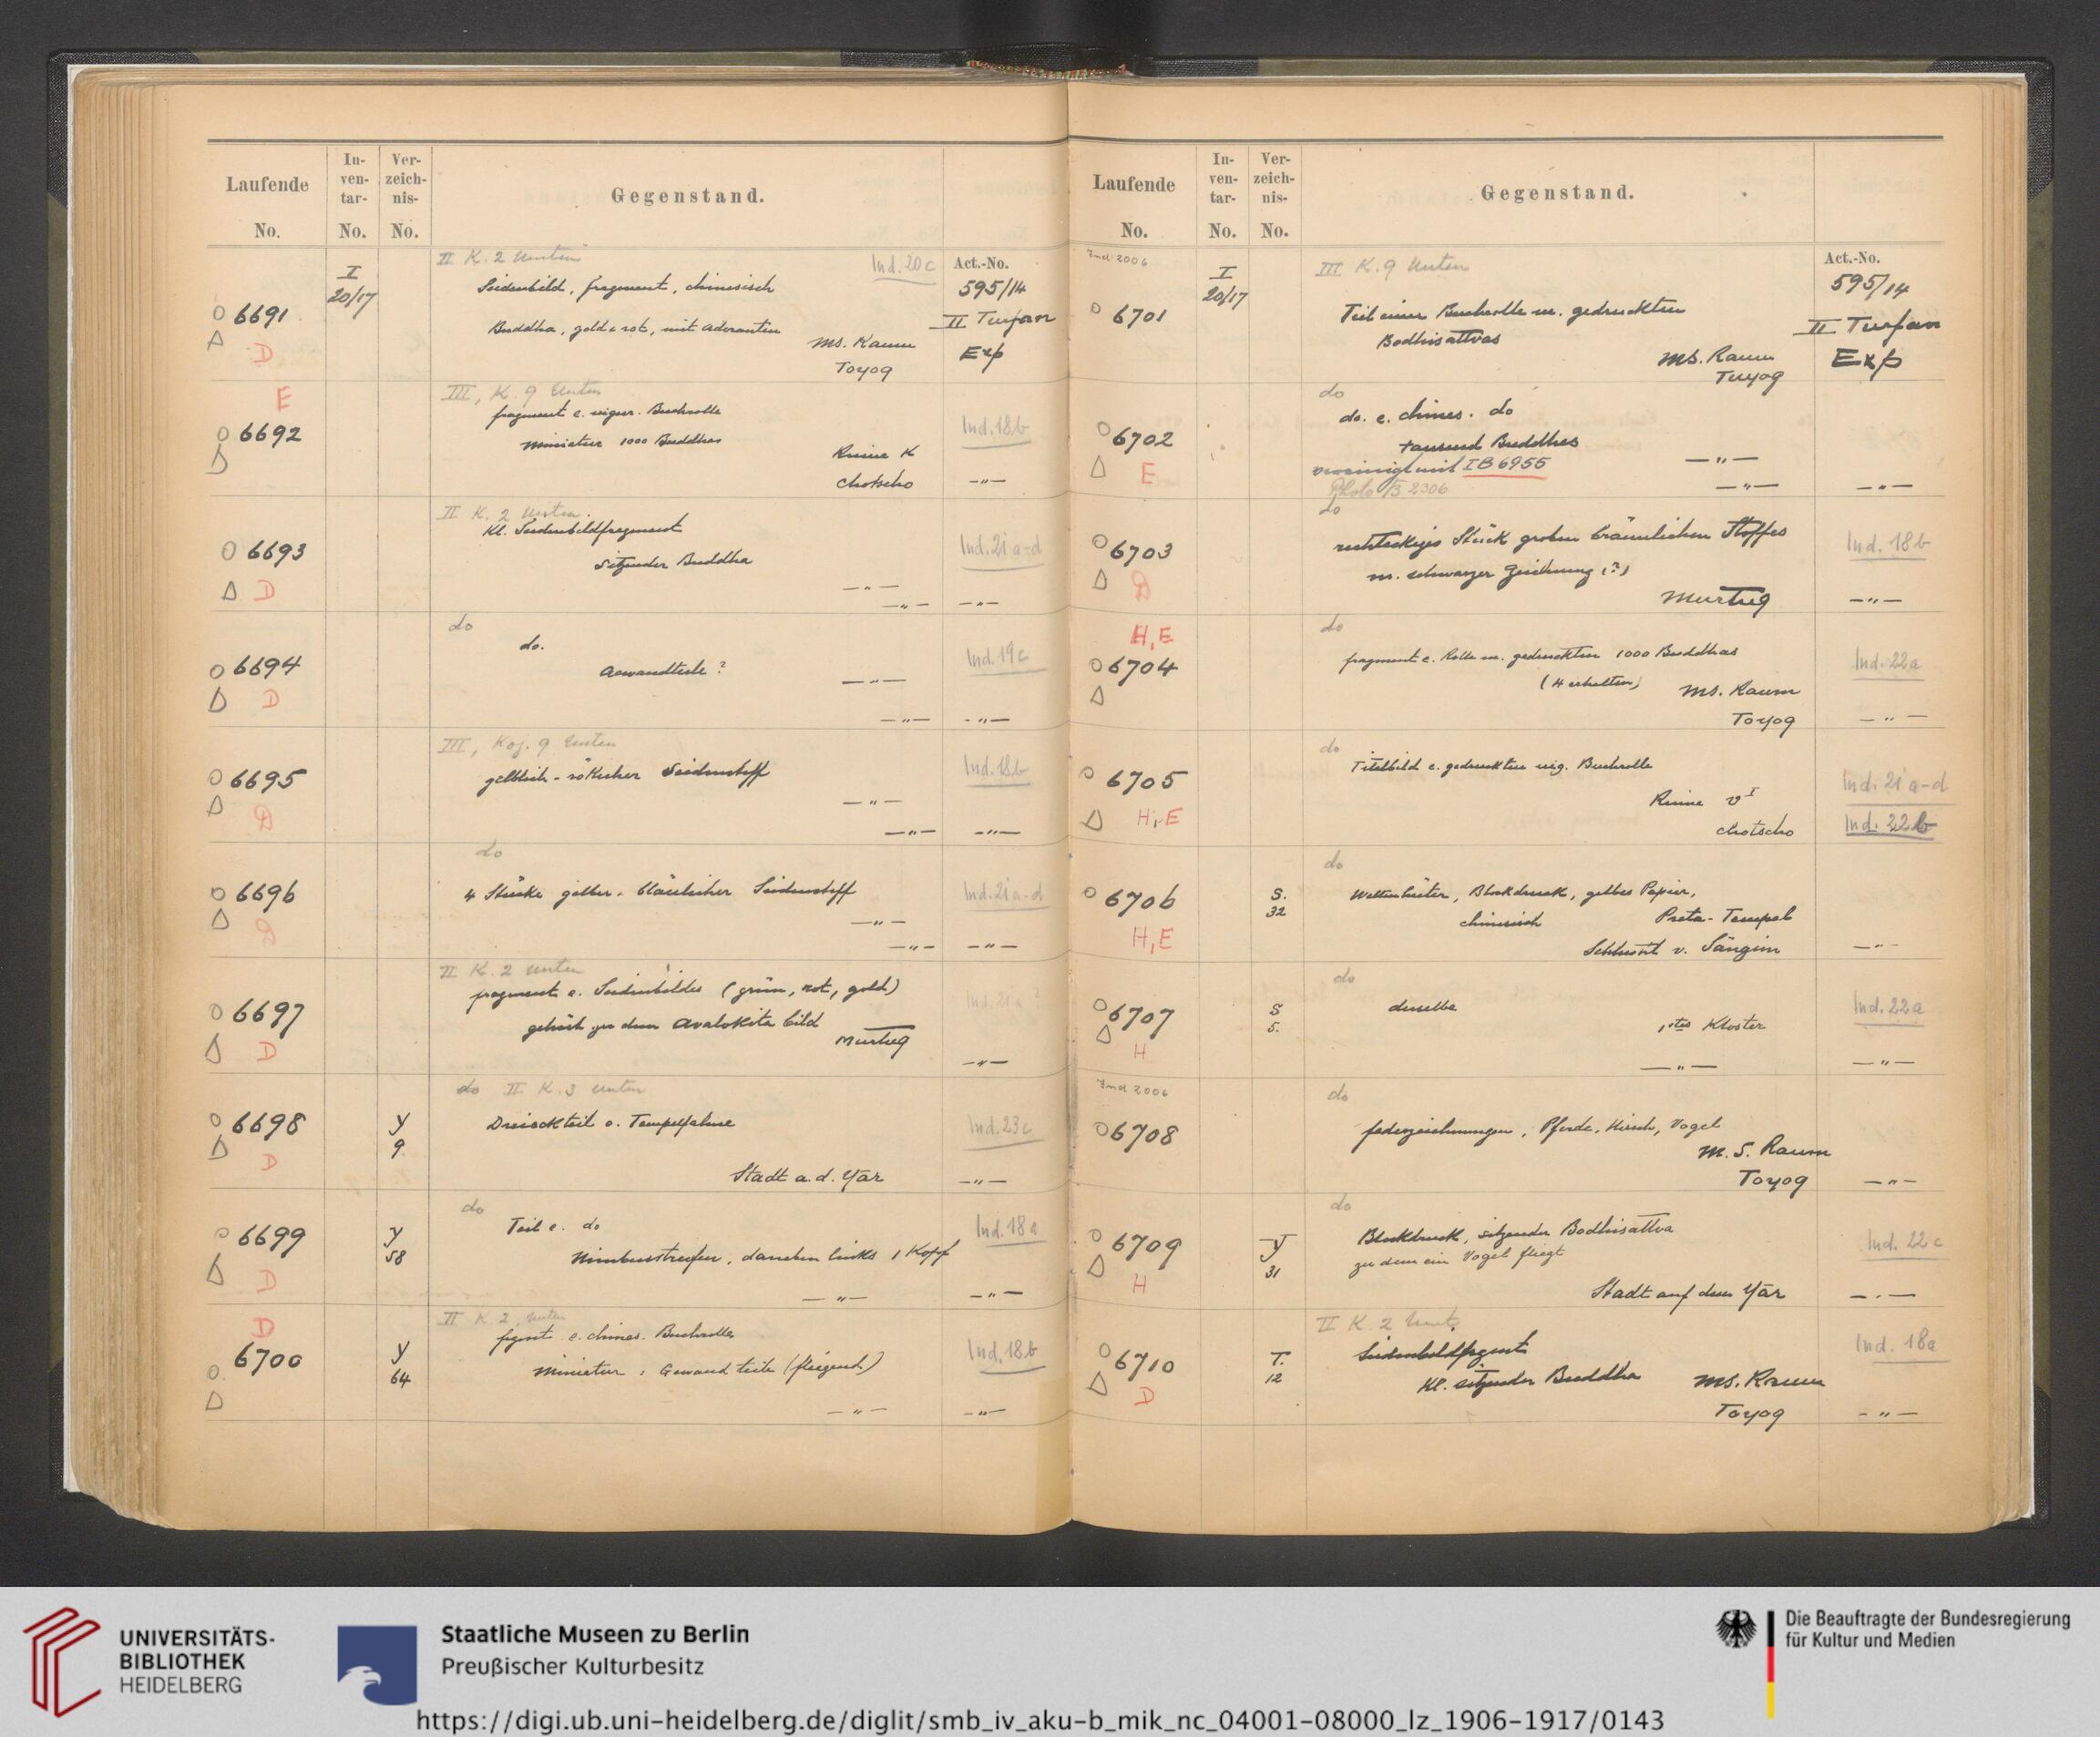 Laufende No.
In-ven-tar-No.
Ver-zeich-nis-No.
Gegenstand.
I 20/17
II K. 2 Unten
Ind. 20c
Act.-No. 595/14
II Turfan Exp
6691
D
Seidenbild, fragment, chinesisch
Buddha, gold u rot, mit Adoranten
Ms. Raum
Toyog
E
III, K. 9 Unten
6692
fragment e. uigur. Buchrolle
Miniatur 1000 Buddhas
Ruine K
Chotscho
Ind. 18b
—"—
II K. 2 Unten.
6693
D
Kl. Seidenbildfragment
Sitzender Buddha
—"—
—"—
Ind. 21 a-d
—"—
do
6694
D
do.
Gewandteile?
—"—
—"—
Ind. 19c
—"—
III, Koj. 9 Unten
6695
D
gelblich-rötlicher Seidenstoff
—"—
—"—
Ind. 18b
—"—
do
6696
D
4 Stücke gelber-bläulicher Seidenstoff
—"—
—"—
Ind. 21 a-d
—"—
II K. 2 unten
6697
D
fragment e. Seidenbildes (grün, rot, gold)
gehört zu dem Avalokita bild
Murtuq
Ind. 21a ?
—"—
do II K. 3 unten
6698
D
y 9
Dreieckteil e. Tempelfahne
Stadt a. d. Yar
Ind. 23c
—"—
do
6699
D
y 58
Teil e. do
Nimbusstreifen, daneben links 1 Kopf
—"—
Ind. 18a
—"—
D
II K. 2, unten
6700
y 64
frgmt e. chines. Buchrolle
Miniatur: Gewand teile (fliegend)
—"—
Ind. 18b
—"—
Laufende No.
In-ven-tar-No.
Ver-zeich-nis-No.
Gegenstand.
Ind 2006
I 20/17
III K. 9 Unten
Act.-No. 595/14
II Turfan Exp
6701
Teil einer Buchrolle m. gedruckten
Bodhisattvas
Ms. Raum
Tuyog
do
6702
E
do. e. chines. do
tausend Buddhas
vereinigt mit IB 6955
Photo B 2306
—"—
—"—
—"—
do
6703
D
rechteckiges Stück groben bräunlichen Stoffes
m. schwarzer Zeichnung (?)
Murtuq
Ind. 18b
—"—
H, E
do
6704
fragment e. Rolle m. gedruckten 1000 Buddhas
(4 erhalten)
Ms. Raum
Toyog
Ind. 22a
—"—
do
6705
H, E
Titelbild e. gedruckten uig. Buchrolle
Ruine
chotscho
Ind. 21 a-d
Ind. 22b
do
6706
H, E
S. 32
Weltenhüter, Blockdruck, gelbes Papier,
chinesisch
Preta-Tempel
Schlucht v. Sängim
—"—
do
6707
H
S 5.
derselbe
1stes Kloster
—"—
Ind. 22a
—"—
Ind 2006
do
6708
federzeichnungen, Pferde, Hirsch, Vogel
M. S. Raum
Toyog
—"—
do
6709
H
y 31
Blockdruck, sitzender Bodhisattva
zu dem ein Vogel fliegt
Stadt auf dem Yar
Ind. 22c
—"—
II K. 2 Unt.
6710
D
T. 12
Seidenbildfrgmt
Kl. sitzender Buddha
Ms. Raum
Toyog
Ind. 18a
—"—
UNIVERSITÄTS-
BIBLIOTHEK
HEIDELBERG
Staatliche Museen zu Berlin
Preußischer Kulturbesitz
Die Beauftragte der Bundesregierung
für Kultur und Medien
https://digi.ub.uni-heidelberg.de/diglit/smb_iv_aku-b_mik_nc_04001-08000_lz_1906-1917/0143